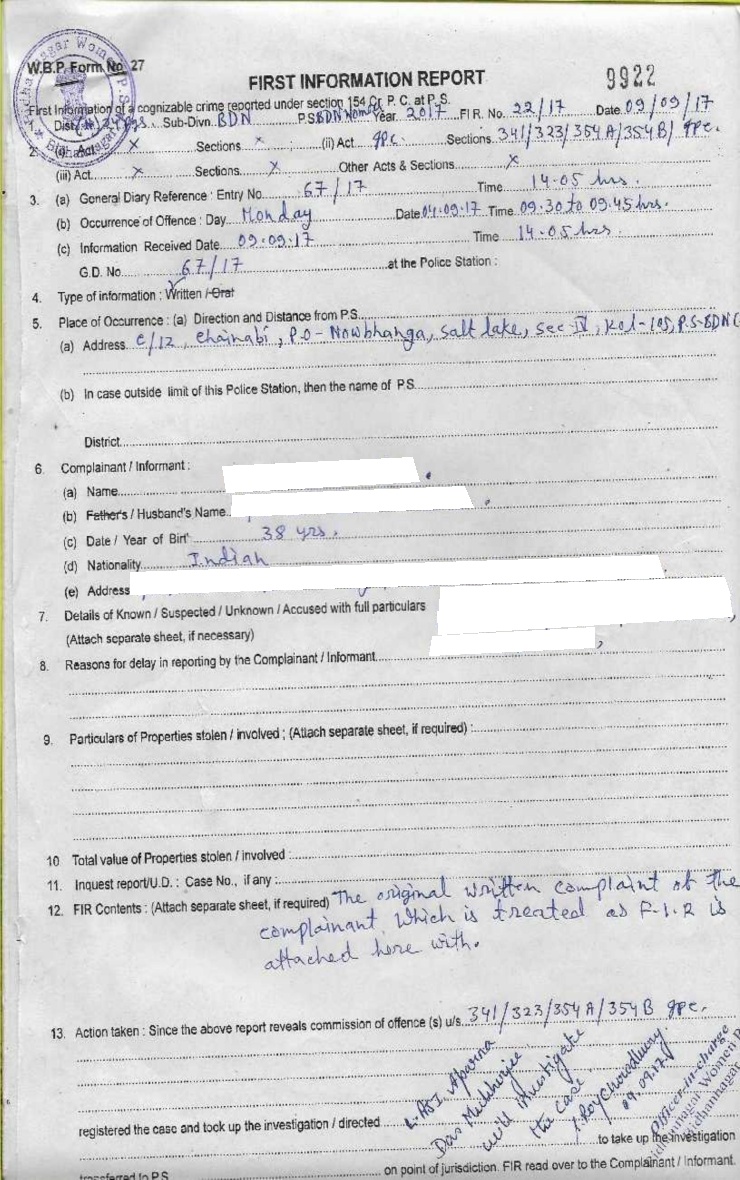 W.B.P. Form No. 27
9922
FIRST INFORMATION REPORT
First Information of a cognizable crime reported under section 154 Cr. P. C. at P.S.
Dist. 24 pgs Sub-Divn. BDN P.S. BDN Women Year. 2017 FIR. No. 22/17 Date. 09/09/17
2. (i) Act X Sections X (ii) Act IPC. Sections 341/323/354A/354B/ IPC.
(iii) Act X Sections X Other Acts & Sections X
3. (a) General Diary Reference : Entry No. 67/17 Time 14.05 hrs.
(b) Occurrence of Offence : Day Monday Date 04.09.17 Time 09.30 to 09.45 hrs.
(c) Information Received Date 09.09.17 Time 14.05 hrs.
G.D. No. 67/17 at the Police Station :
4. Type of information : Written / Oral
5. Place of Occurrence : (a) Direction and Distance from P.S.
(a) Address C/12, Chainabi, P.O- Nowbhanga, salt lake, sec IV, Kol-105, P.S-BDN(
(b) In case outside limit of this Police Station, then the name of P.S.
District
6. Complainant / Informant :
(a) Name
(b) Father's / Husband's Name
(c) Date / Year of Birt 38 yrs.
(d) Nationality Indian
(e) Address
7. Details of Known / Suspected / Unknown / Accused with full particulars
(Attach separate sheet, if necessary)
8. Reasons for delay in reporting by the Complainant / Informant
9. Particulars of Properties stolen / involved ; (Attach separate sheet, if required) :
10 Total value of Properties stolen / involved :
11. Inquest report/U.D. : Case No., if any :
12. FIR Contents : (Attach separate sheet, if required) The original written complaint of the
complainant, which is treated as F.I.R is
attached here with.
13. Action taken : Since the above report reveals commission of offence (s) u/s. 341/323/354A/354B IPC.
L. ASI Aparna
Das Mukherjee
will investigate
the case.
I. Roy Chowdhury
09.09.17
Officer-in-charge
Bidhannagar Women P
Bidhannagar
registered the case and took up the investigation / directed
to take up the investigation
transferred to P.S. on point of jurisdiction. FIR read over to the Complainant / Informant.